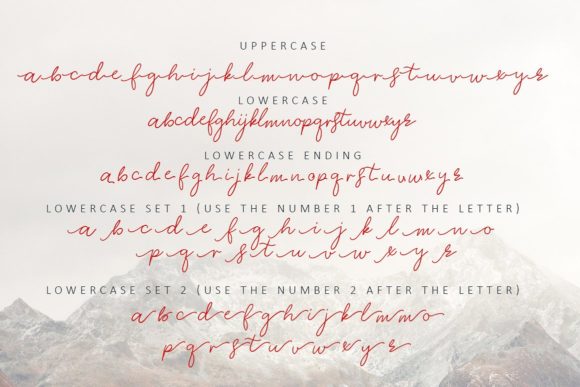 UPPERCASE
abcdefghijklmnopqrstuvwxyz
LOWERCASE
abcdefghijklmnopqrstuvwxyz
LOWERCASE ENDING
abcdefghijklmnopqrstuvwxyz
LOWERCASE SET 1 (USE THE NUMBER 1 AFTER THE LETTER)
a b c d e f g h i j k l m n o
p q r s t u v w x y z
LOWERCASE SET 2 (USE THE NUMBER 2 AFTER THE LETTER)
abcdefghijklmno
pqrstuvwxyz